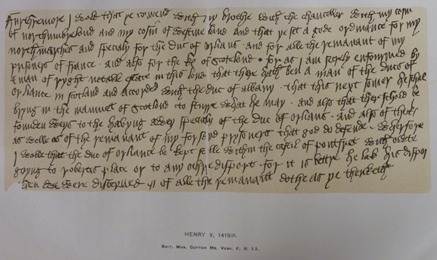 Furthremore I wold that ye comend with my brothre with the chanceller with my cosin
of northumbrelond and my cosin of westmerland and that ye set a gode ordinance for my
north marches and specialy for the duc of orlians and for alle the remanant of my
prisoners of france and also for the k of scotelond for as I am secrely enfourmed by
a man of ryght notable estate in this lond that there hath ben a man of the ducs of
orliance in scotland and accorded with the duc of albany that this next somer he schal
bryng in the mamuet of scotlond to sturre what he may and also that ther schold be
founden weys to the havyng awey specialy of the duc of orlians and also of the k
as welle as of the remanant of my forsayd prysoners that god do defende wherfore
I wolle that the duc of orliance be kept stille withyn the castil of pontfret with owte
goyng to robertis place or to any othre disport for it is bettre he lak his disport
then we were disceyved of alle the remanant dothe as ye thenketh
HENRY V, 1419(?).
BRIT. MUS. COTTON MS. VESP. F. III